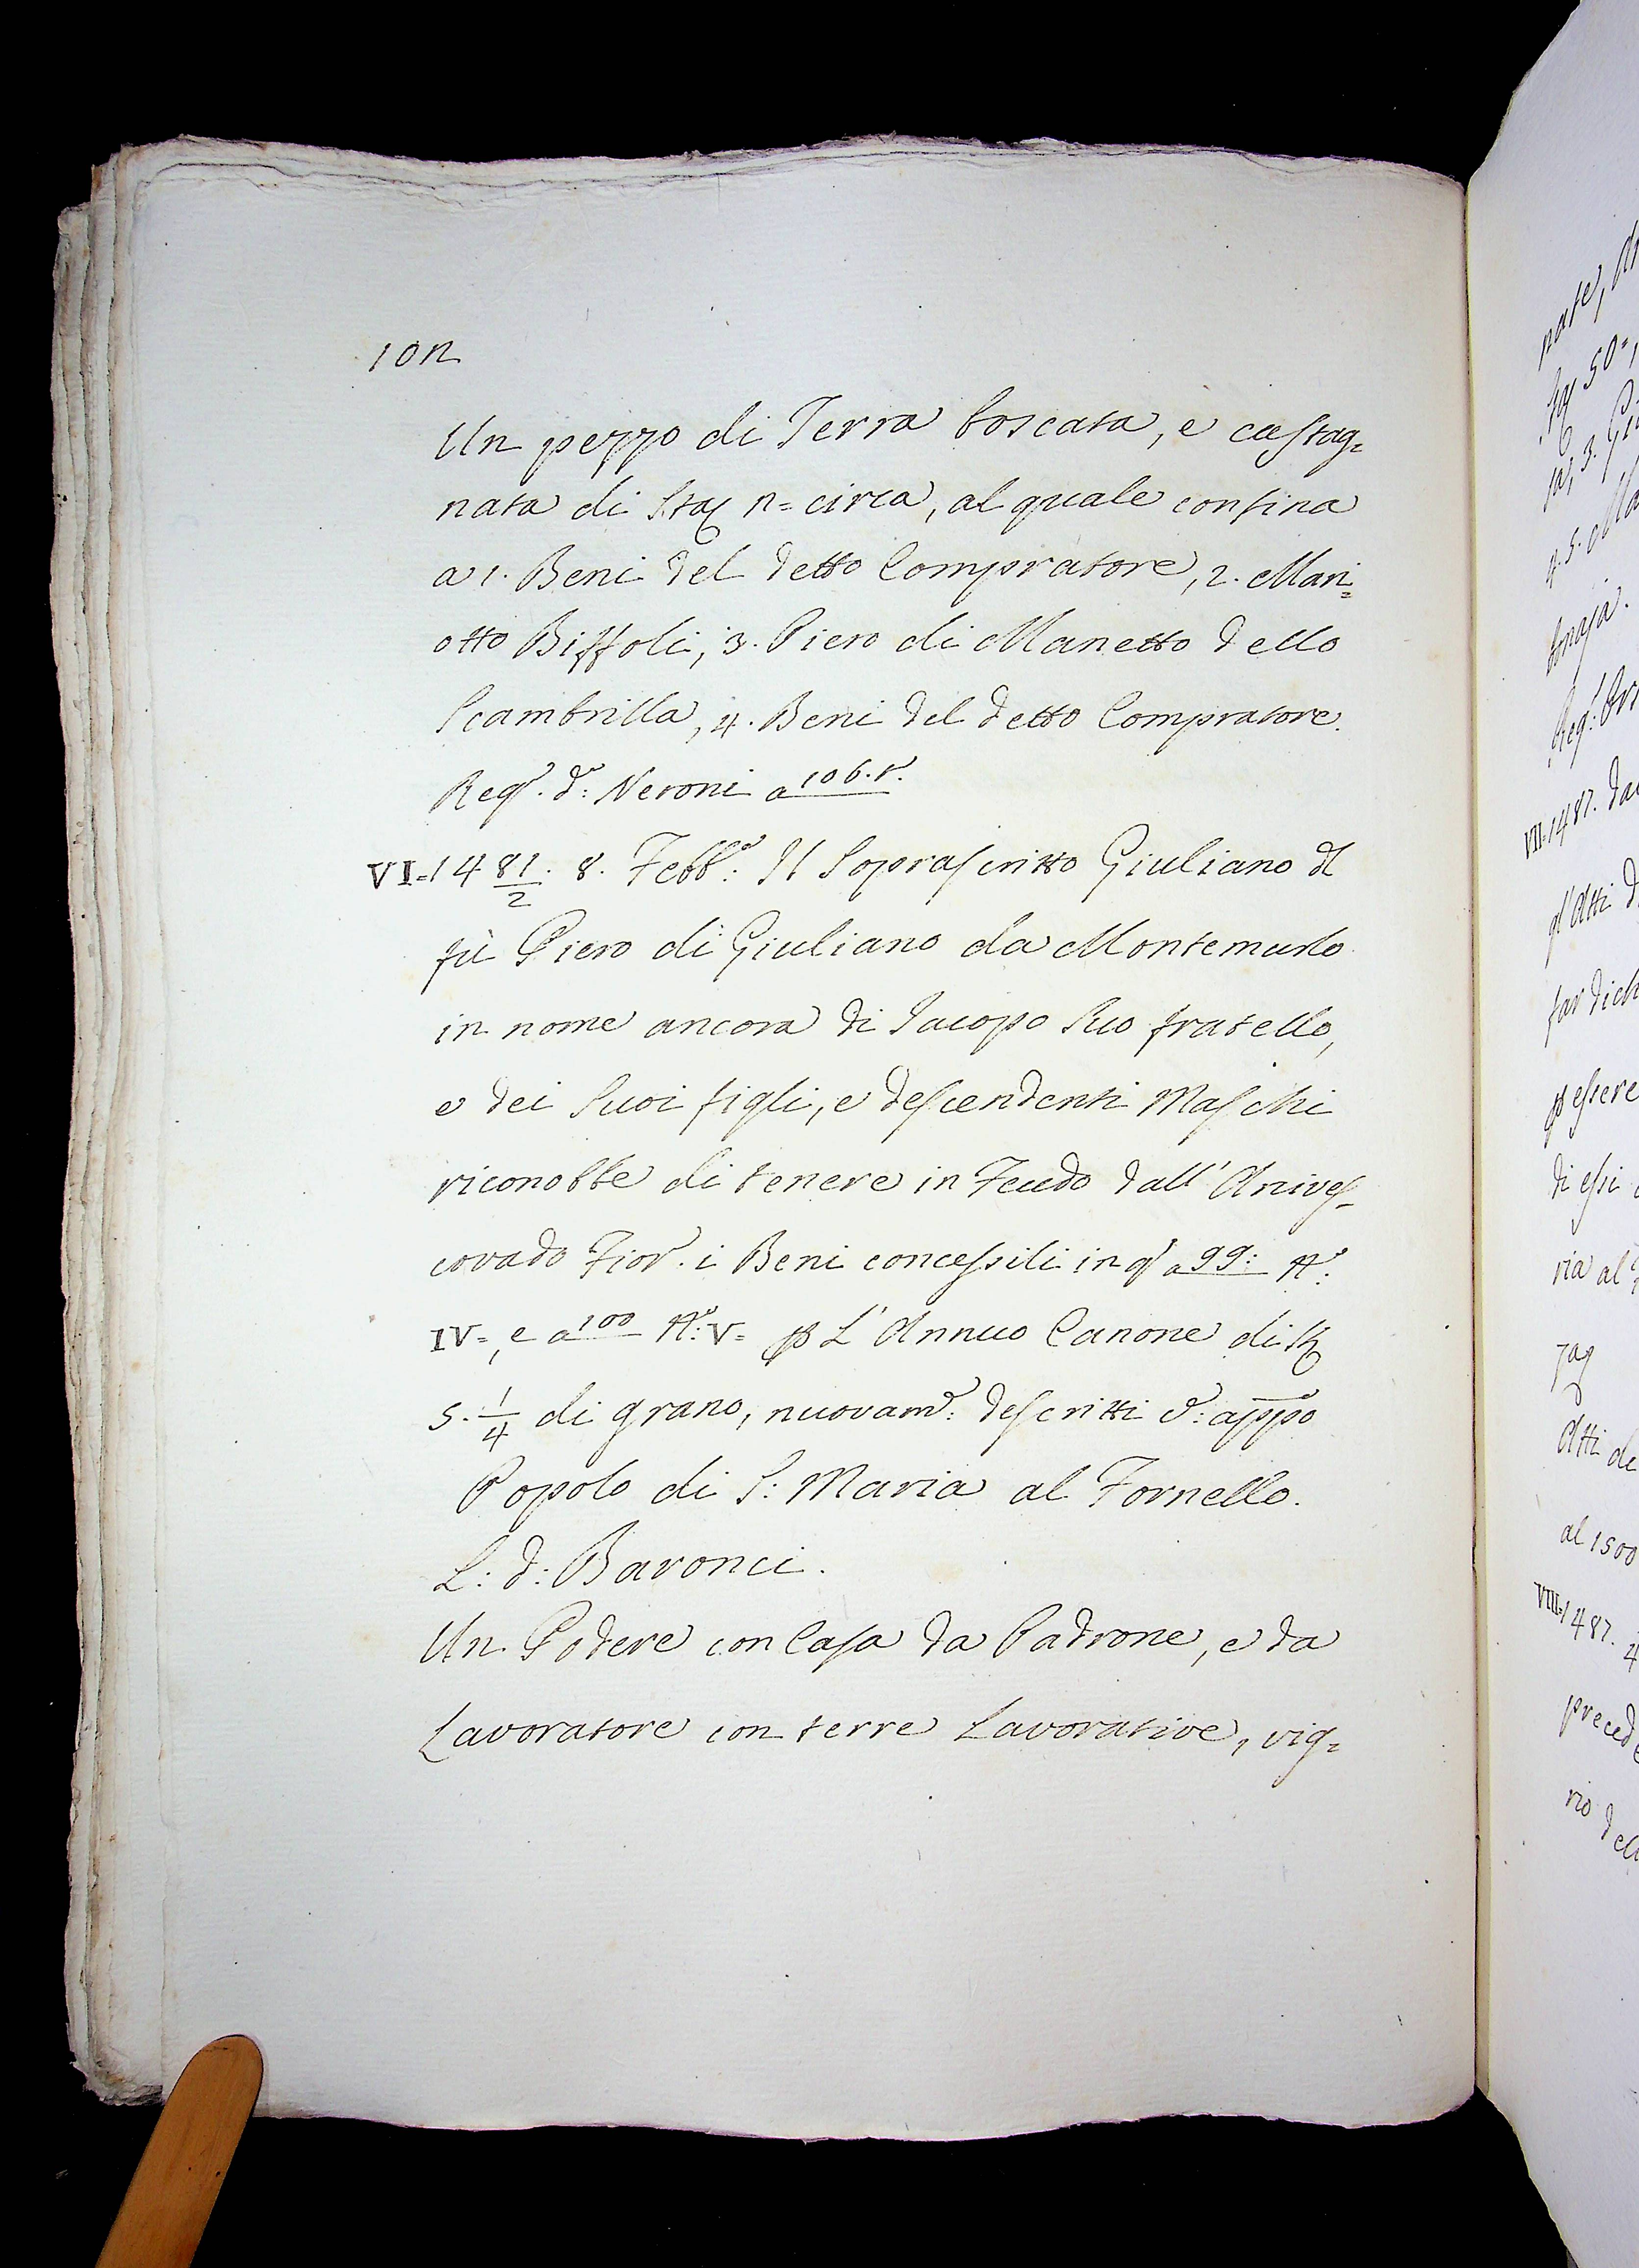 102
Un pezzo di Terra boscata, e castag=
nata di Sta 2= circa, al quale confina
a 1. Beni del detto Compratore, 2. Mari=
otto Biffoli, 3. Piero di Manetto dello
Scambrilla, 4. Beni del detto Compratore.
Rego. do: Neroni a 106.r.
VI=1481/2. 8. Febbo: Il Soprascritto Giuliano dl
fù Piero di Giuliano da Montemurlo
in nome ancora di Iacopo Suo fratello,
e dei Suoi figli, e descendenti Maschi
riconobbe di tenere in Feudo dall' Arcives=
covado Fior. i Beni concessili in q a 99: No:
IV=, e a 100 No: V= p L' Annuo Canone di St
5. 1/4 di grano, nuovame: descritti e: appo
Popolo di S: Maria al Fornello.
L: d: Baronci.
Un Podere con Casa da Padrone, e da
Lavoratore con terre Lavorative, vig=
nate,
50=,
3.
VII=1487.
gl'Atti
far dich
essere
di essi
ria al
Atti de
al 1500
VIII=1487. 4
preced
rio dell